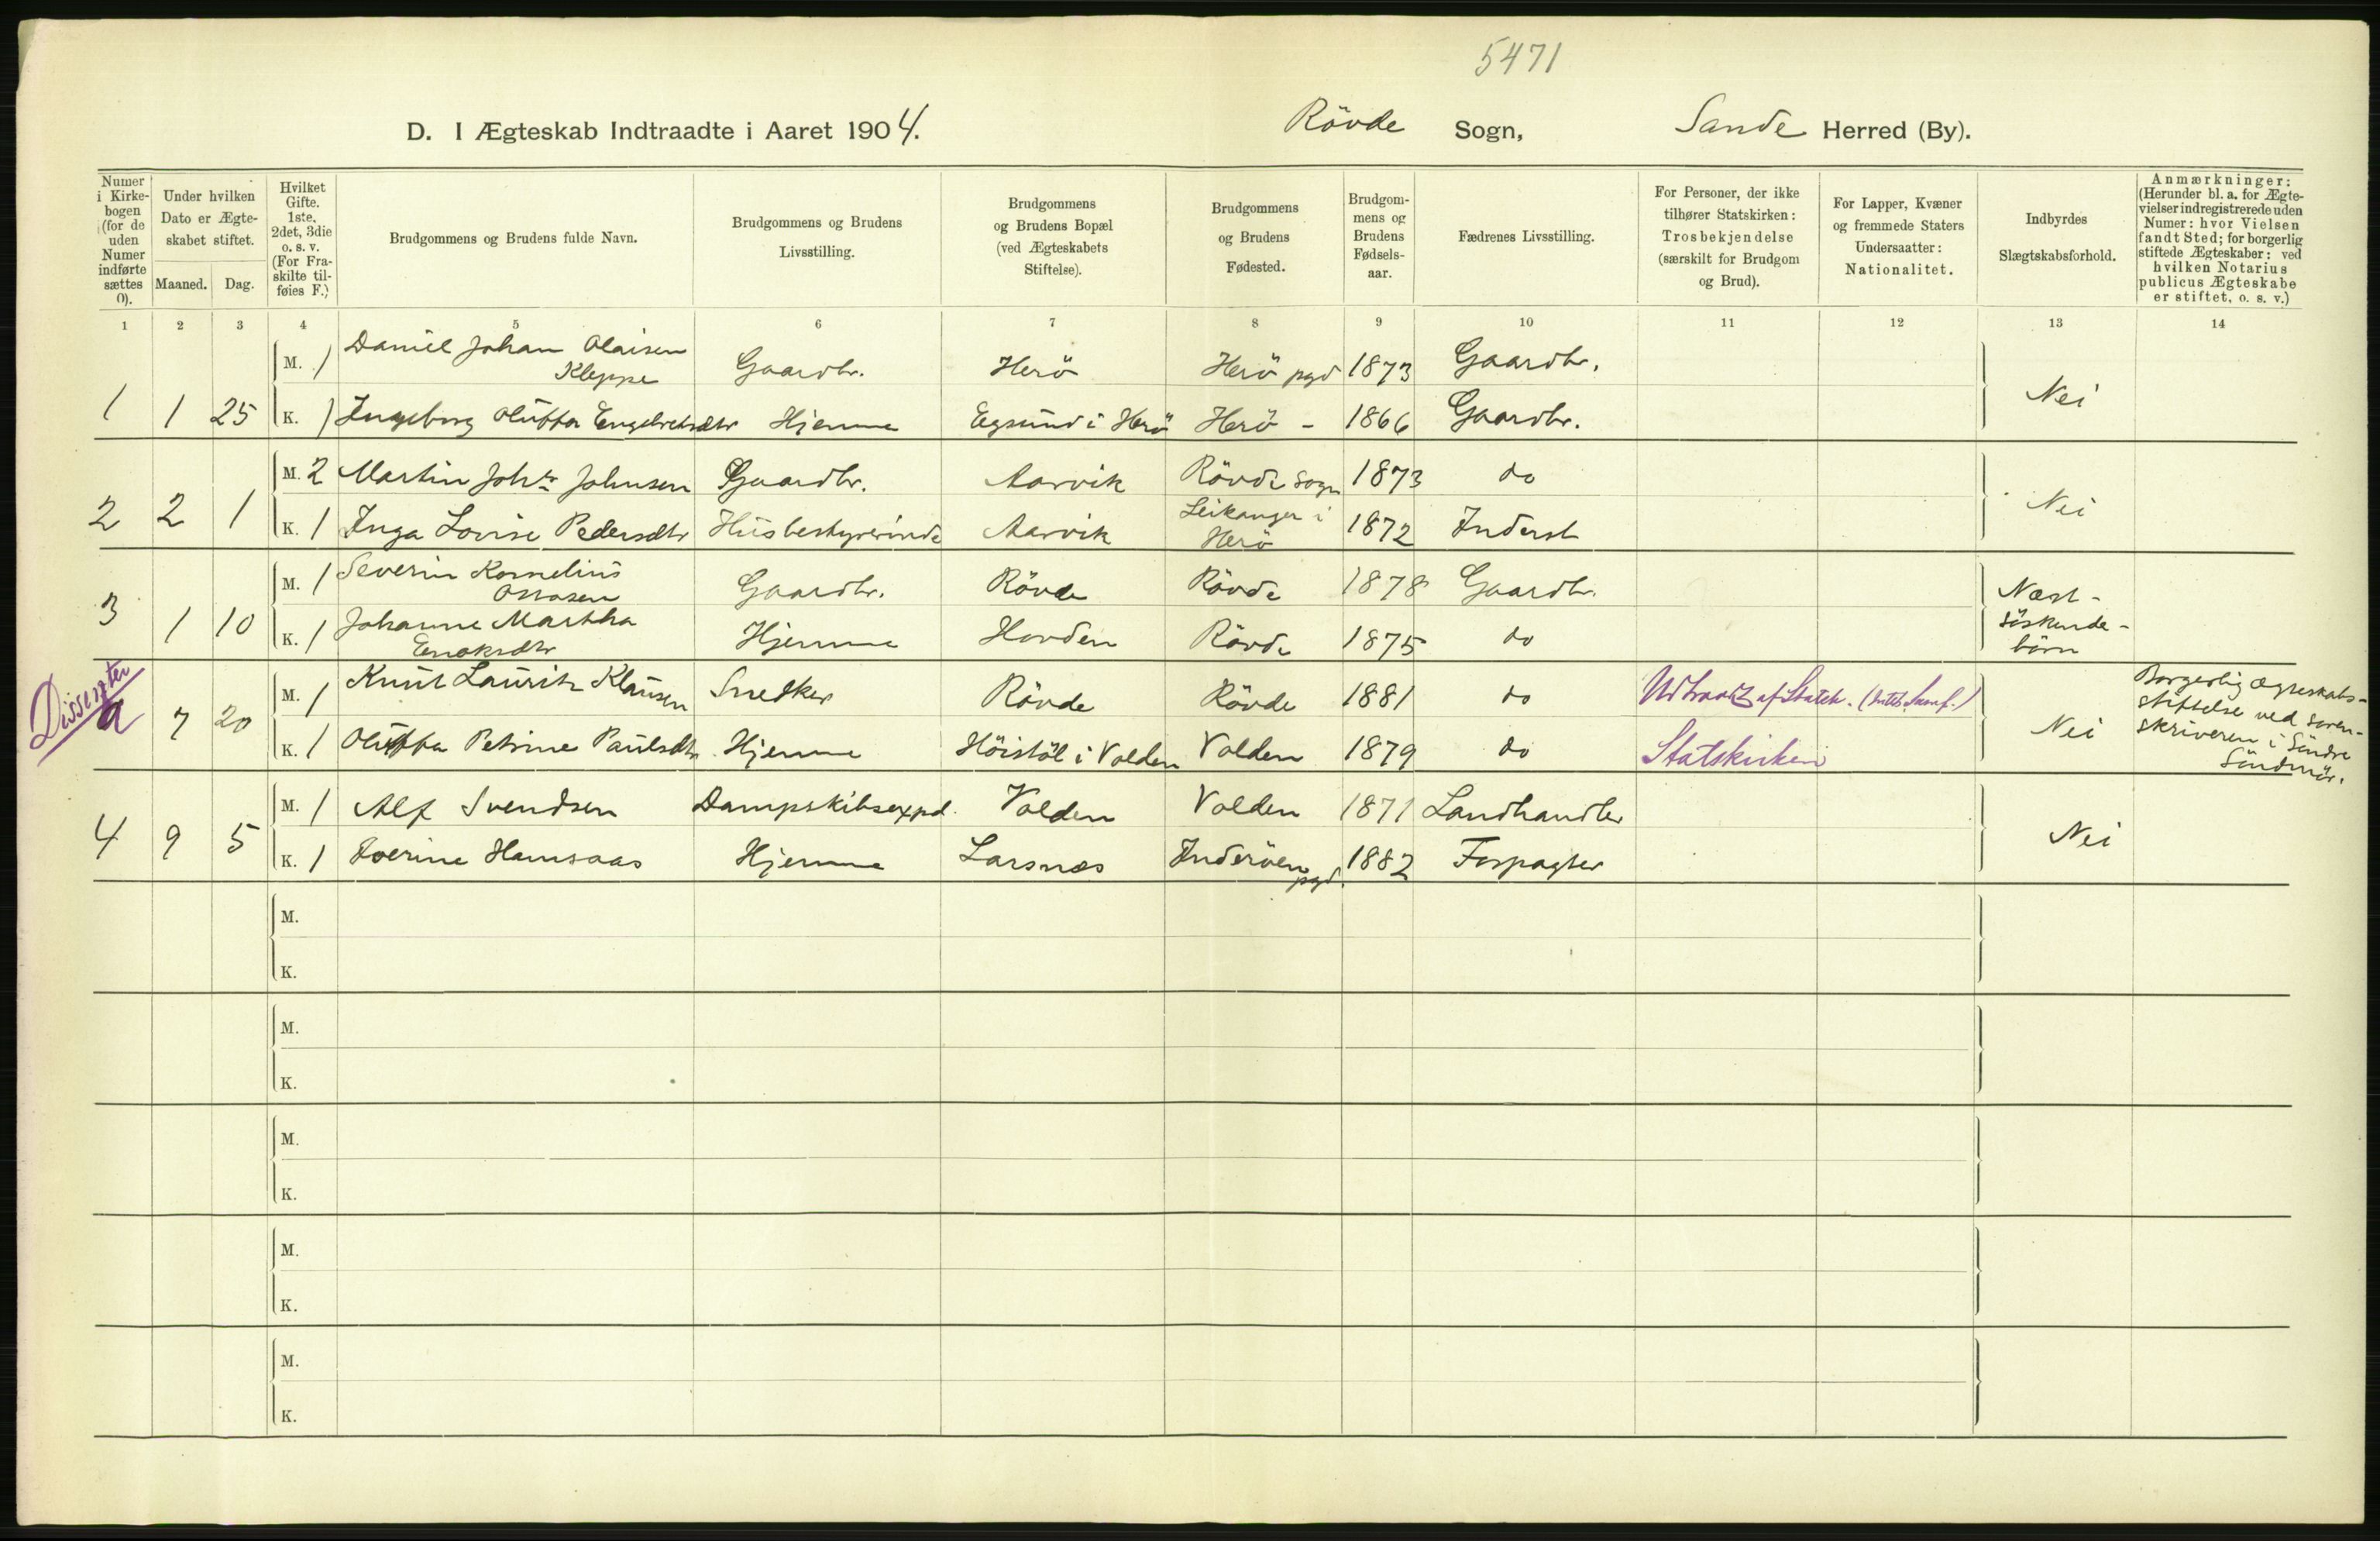 5471
D. I Ægteskab Indtraadte i Aaret 1904. Rövde Sogn, Sande Herred (By).
Numer i Kirkebogen (for de uden Numer indførte sættes 0).
Under hvilken Dato er Ægteskabet stiftet.
Maaned. Dag.
Hvilket Gifte. 1ste, 2det, 3die o. s. v. (For Fraskilte tilføies F.)
Brudgommens og Brudens fulde Navn.
Brudgommens og Brudens Livsstilling.
Brudgommens og Brudens Bopæl (ved Ægteskabets Stiftelse).
Brudgommens og Brudens Fødested.
Brudgommens og Brudens Fødselsaar.
Fædrenes Livsstilling.
For Personer, der ikke tilhører Statskirken: Trosbekjendelse (særskilt for Brudgom og Brud).
For Lapper, Kvæner og fremmede Staters Undersaatter: Nationalitet.
Indbyrdes Slægtskabsforhold.
Anmærkninger: (Herunder bl. a. for Ægtevielser indregistrerede uden Numer: hvor Vielsen fandt Sted; for borgerlig stiftede Ægteskaber: ved hvilken Notarius publicus Ægteskabe er stiftet, o. s. v.)
1 2 3 4 5 6 7 8 9 10 11 12 13 14
M. 1 Daniel Johan Olaisen Kleppe Gaardbr. Herö Herö pgd 1873 Gaardbr.
1 1 25 K. 1 Ingeborg Oluffa Engebretsdtr Hjemme Egsund i Herö Herö - 1866 Gaardbr. Nei
M. 2 Martin Johs Johnsen Gaardbr. Aarvik Rövde sogn 1873 do
2 2 1 K. 1 Inga Lovise Pedersdtr Husbestyrerinde Aarvik Leikanger i Herö 1872 Inderst Nei
M. 1 Severin Kornelius Gaardbr. Rövde Rövde 1878 Gaardbr.
3 1 10 K. 1 Johanne Martha Enoksdtr Hjemme Hovden Rövde 1875 do Næst-söskendebörn
Dissenter
M. 1 Knut Lauritz Klausen Snedker Rövde Rövde 1881 do Udtraadt af Statsk.
a 7 20 K. 1 Oluffa Petrine Paulsdtr Hjemme Höistöl i Volden Volden 1879 do Statskirken Nei
Borgerlig ægteskabs-
stiftelse ved soren-
skriveren i Söndre
Söndmör.
M. 1 Alf Svendsen Dampskibsexpd. Volden Volden 1871 Landhandler
4 9 5 K. 1 Iverine Hamsaas Hjemme Larsnæs Inderöen pgd. 1882 Forpagter Nei
M.
K.
M.
K.
M.
K.
M.
K.
M.
K.